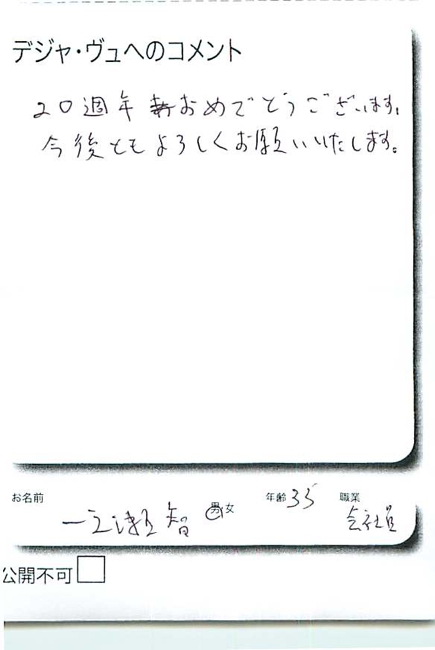 デジャ・ヴュへのコメント
20週年おめでとうございます。
今後ともよろしくお願いいたします。
お名前 智 男 女 年齢 35 職業 会社員
公開不可